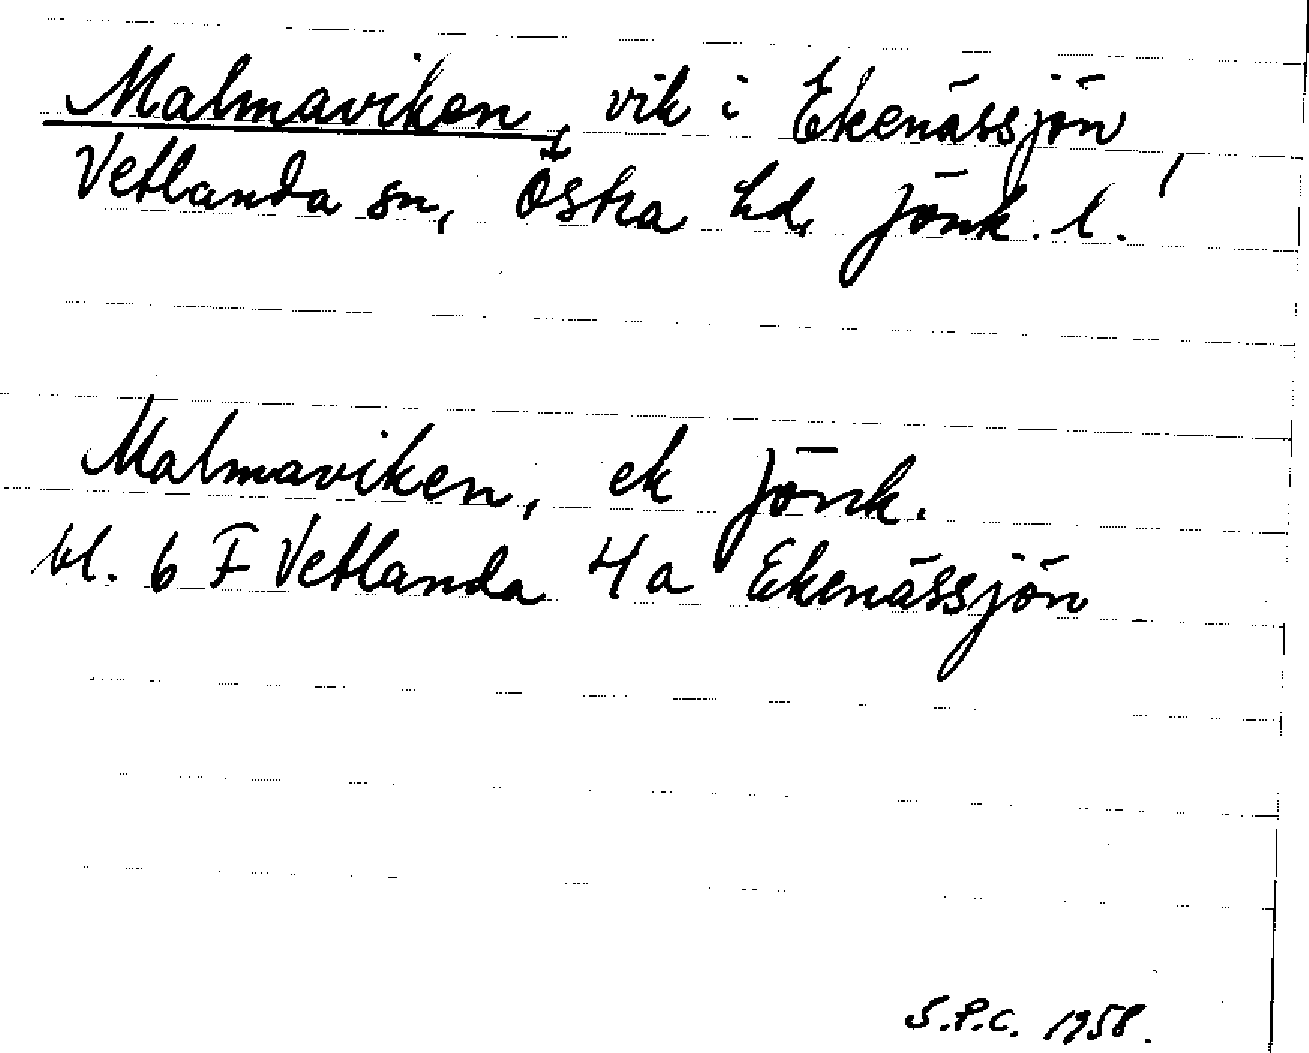 Malmaviken, vik i Ekenässjön,
Vetlanda sn, Östra hd, Jönk. l.
Malmaviken, ek Jönk.
bl. 6 F Vetlanda 4a Ekenässjön
S.P.C. 1958.